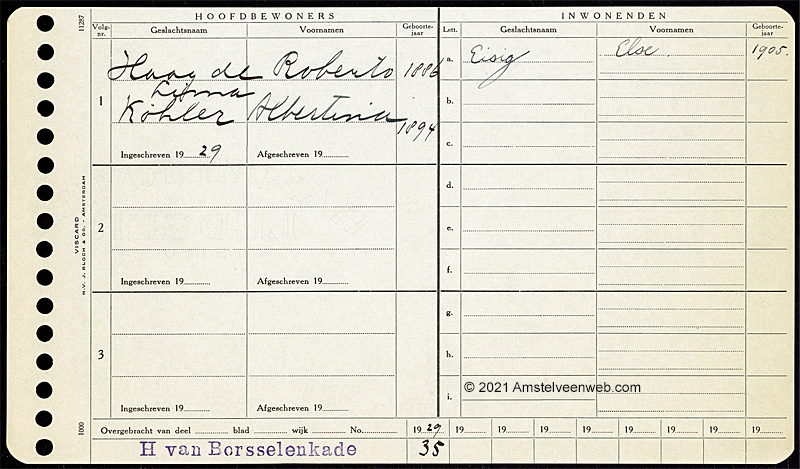 HOOFDBEWONERS INWONENDEN
Volg-nr. Geslachtsnaam Voornamen Geboorte-jaar Lett. Geslachtsnaam Voornamen Geboorte-jaar
1 Haay de Roberto 1886 a. Eisig Else 1905.
Köhler Albertina 1894 b.
c.
Ingeschreven 19 29 Afgeschreven 19
2 d.
e.
Ingeschreven 19 Afgeschreven 19 f.
3 g.
h.
© 2021 Amstelveenweb.com
Ingeschreven 19 Afgeschreven 19 i.
Overgebracht van deel blad wijk No. 19 29 19 19 19 19 19 19 19 19
H van Borsselenkade 35
11287
VISCARD
N.V. J. BLOCH & CO. - AMSTERDAM
1000